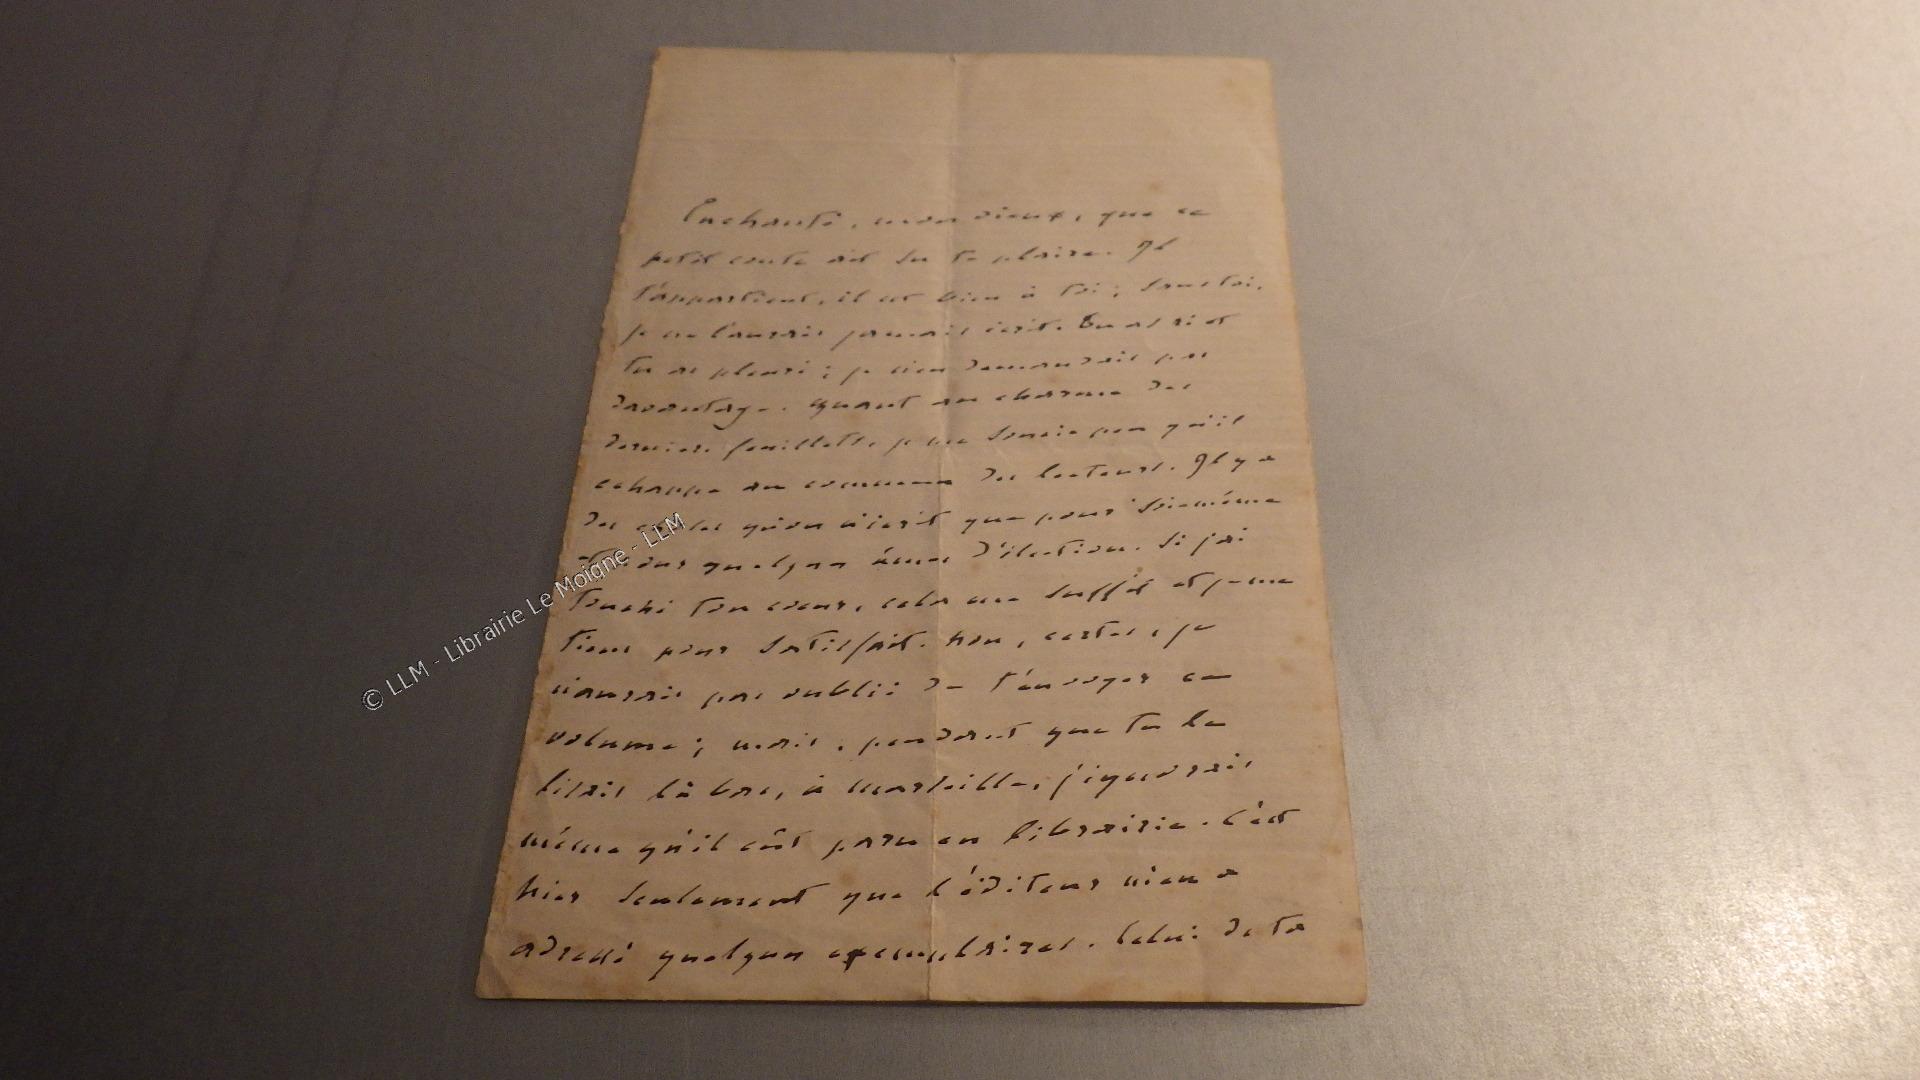 Enchanté, mon vieux, que ce
petit conte ait su te plaire. Il
t'appartient, il est bien à toi ; sans toi,
je ne l'aurais jamais écrit. Tu as ri et
tu as pleuré ; je n'en demandais pas
davantage. Quant au charme des
derniers feuillets, je me soucie peu qu'il
échappe au commun des lecteurs. Il y a
des qu'on n'écrit que pour soi-même
et pour quelques âmes d'élection. Si j'ai
touché ton coeur, cela me suffit et je me
tiens pour satisfait. Non, certes, je
n'aurais pas oublié de t'envoyer ce
volume ; mais, pendant que tu le
lisais là bas, à Marseille, j'ignorais
même qu'il eût paru en librairie. C'est
hier seulement que l'éditeur m'en a
adressé quelques exemplaires. Celui de ta
© LLM - Librairie Le Moigne - LLM